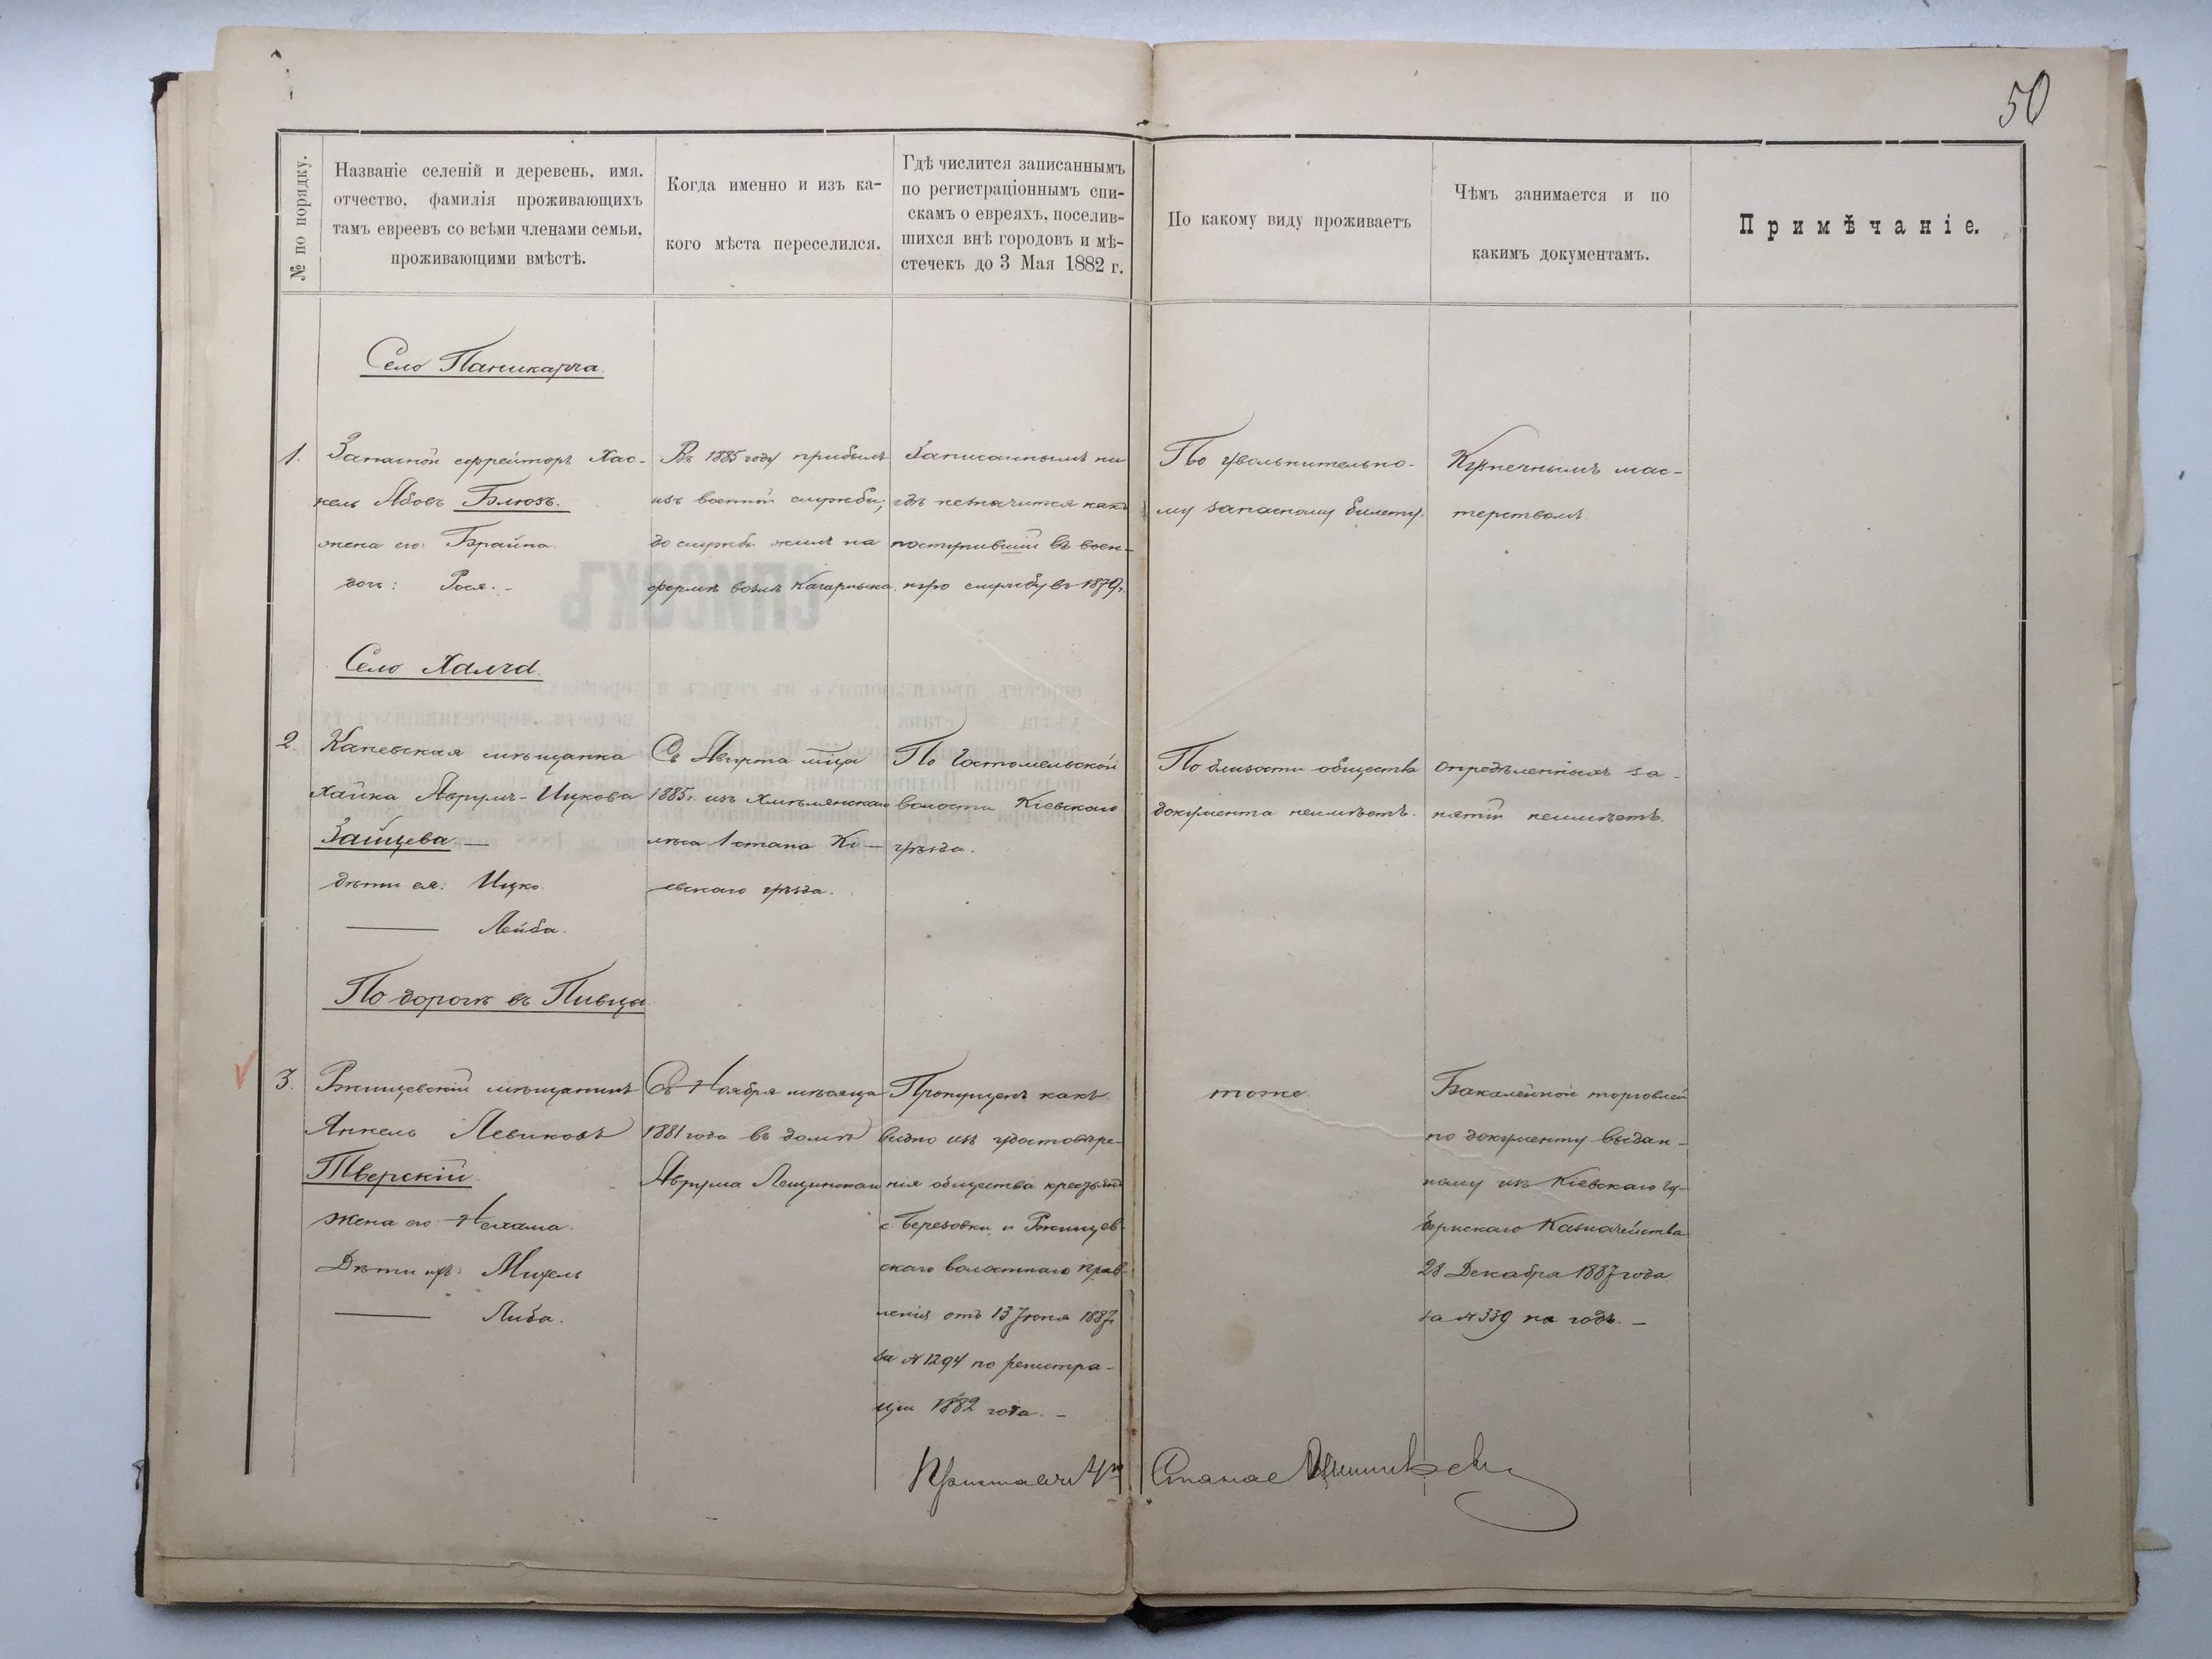 50
№ по порядку.
Названіе селеній и деревень, имя,
отчество, фамилія проживающихъ
тамъ евреевъ со всѣми членами семьи,
проживающими вмѣстѣ.
Когда именно и изъ ка-
кого мѣста переселился.
Гдѣ числится записаннымъ
по регистраціоннымъ спи-
скамъ о евреяхъ, поселив-
шихся внѣ городовъ и мѣ-
стечекъ до 3 Мая 1882 г.
По какому виду проживаетъ
Чѣмъ занимается и по
какимъ документамъ.
Примѣчаніе.
Село Паникарча.
1.
Запасной ефрейторъ Хас-
кель Абовъ Блюзъ.
жена его: Брайна.
дочь: Рося.
Въ 1885 году прибылъ
изъ военной службы,
до службы жилъ на
фермѣ возлѣ Кагарлыка.
Записаннымъ ни
гдѣ незначится какъ
поступившій въ воен-
ную службу въ 1879 г.
По увольнительно-
му запасному билету.
Кузнечнымъ мас-
терствомъ.
Село Халча.
2.
Каневская мѣщанка
Хайка Аврумъ-Ицкова
Зайцева. —
дѣти ея: Ицко.
—— Лейба.
Съ Августа мѣца
1885 г. изъ
1 стана Кі-
евскаго уѣзда.
По Гостомельской
волости Кіевскаго
уѣзда.
По близости общества
документа неимѣетъ.
Опредѣленныхъ за-
нятій неимѣетъ.
По дорогѣ въ Пивцы
3.
Ржищевскій мѣщанинъ
Янкель Левиковъ
Тверскій.
жена его: Нехама.
Дѣти ихъ:
—— Либа.
Съ Ноября мѣсяца
1881 года въ домѣ
Аврума
Пропущенъ какъ
видно изъ удостовѣре-
нія общества крестьянъ
с Березовки и Ржищев-
скаго волостнаго прав-
ленія отъ 13 Іюня 1887
за № 1294 по регистра-
ціи 1882 года. —
тоже.
Бакалейной торговлей
по документу выдан-
ному изъ Кіевскаго Гу-
бернскаго Казначейства
28 Декабря 1887 года
за № 339 на годъ. —
Приставъ 4го Стана